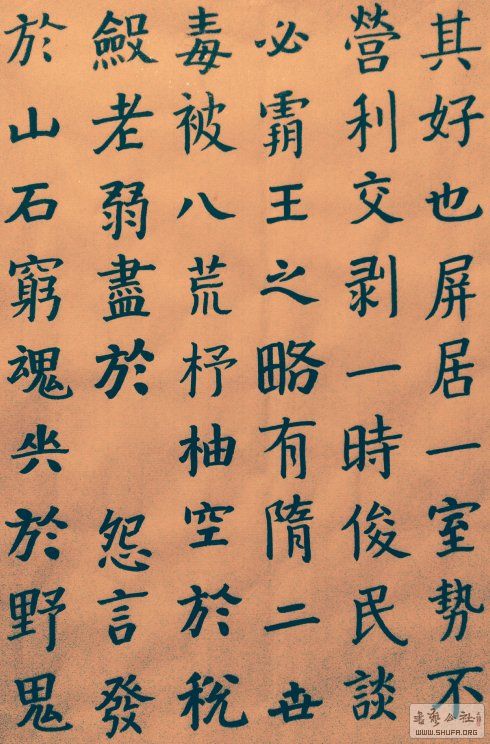 其好也屏居一室勢不
營利交剥一時俊民談
必霸王之略有隋二世
毒被八荒杼柚空於稅
斂老弱盡於 怨言發
於山石窮魂哭於野鬼
書藝公社
WWW.SHUFA.ORG